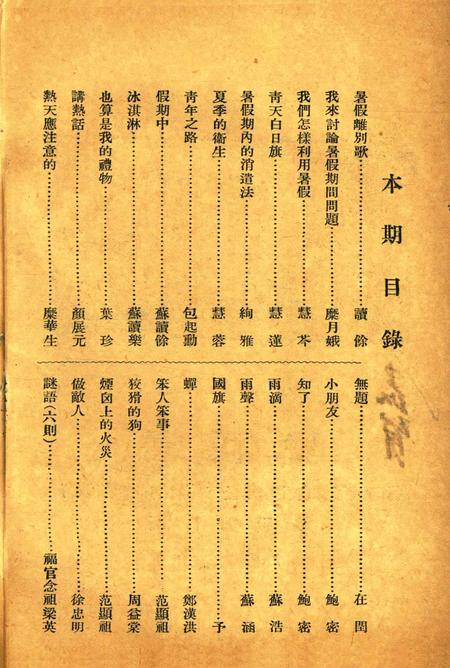 本期目錄
暑假離別歌……讀餘
我來討論暑假期間問題……糜月娥
我們怎樣利用暑假……慧芩
青天白日旗……慧蓮
暑假期內的消遣法……絢雅
夏季的衞生……慧蓉
靑年之路……包起勳
假期中……蘇讀餘
冰淇淋……蘇讀樂
也算是我的禮物……葉珍
講熱話……顏展元
熱天應注意的……糜華生
無題……在閏
小朋友……鮑密
知了……鮑密
雨滴……蘇浩
雨聲……蘇涵
國旗……予
蟬……鄭漢洪
笨人笨事……范顯祖
狡猾的狗……周益棠
煙囪上的火災……范顯祖
做敵人……徐忠明
謎語(六則)……福官念祖梁英